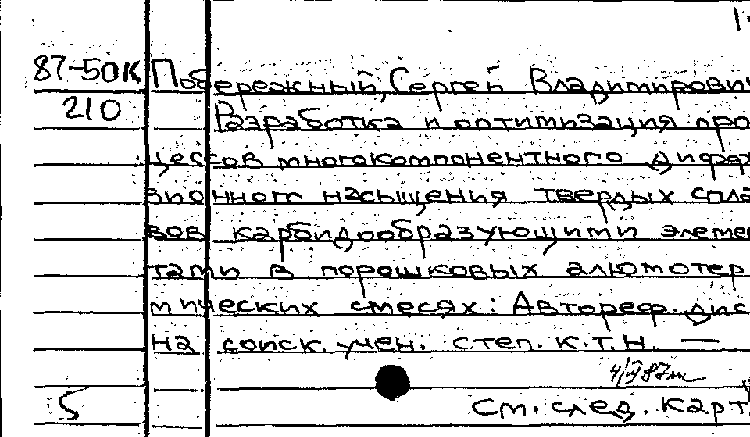 87-50К Побережный, Сергей Владимирович
210 Разработка и оптимизация про-
цессов многокомпонентного диффу-
зионного насыщения твердых спла-
вов карбидообразующими элемен-
тами в порошковых алюмотер-
мических смесях: Автореф. дис.
на соиск. учен. степ. к.т.н. —
5 См. след. карт